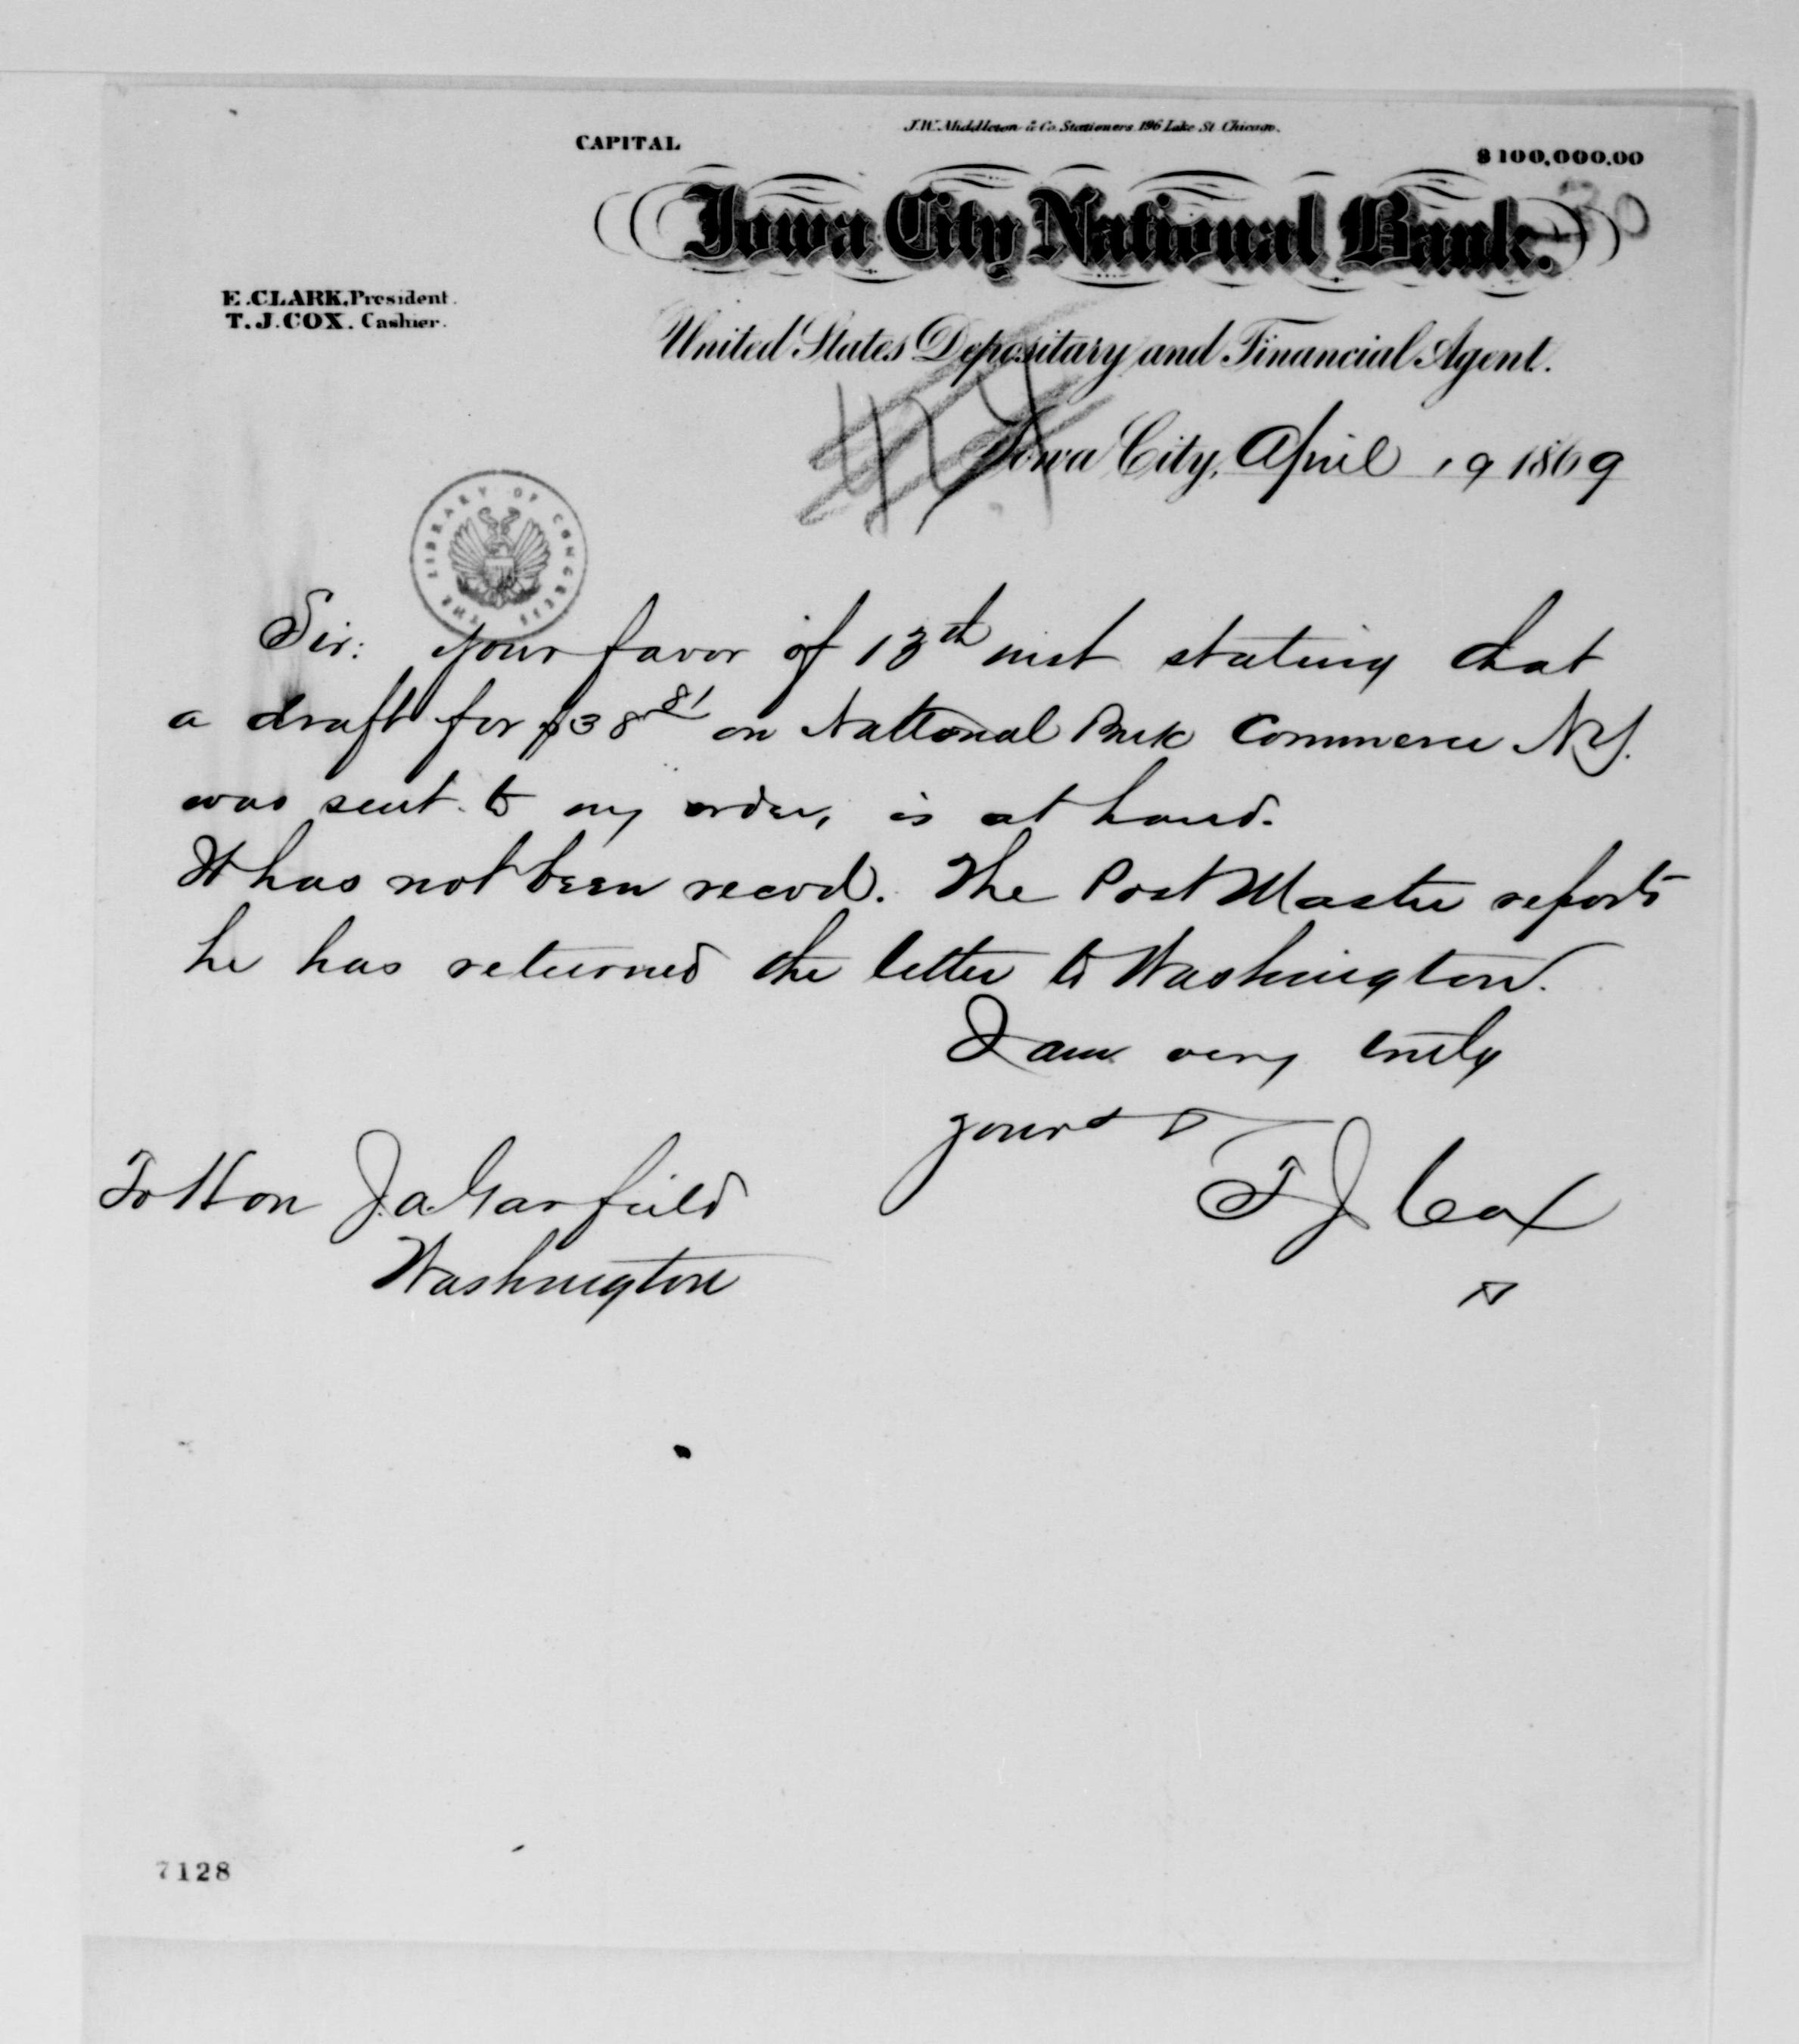 J.W. Middleton & Co. Stationers 196 Lake St. Chicago.
CAPITAL $100,000.00
Iowa City National Bank.
30
E. CLARK, President.
T. J. COX. Cashier.
United States Depositary and Financial Agent.
Iowa City, April 19 1869
THE LIBRARY OF CONGRESS
Sir: Your favor of 13th inst stating that
a draft for $38 81 on National Bnk Commerce N.Y.
was sent to my order, is at hand.
It has not been recvd. The Post Master reports
he has returned the letter to Washington.
I am very truly
yours
T J Cox
To Hon J. A. Garfield
Washington
7128